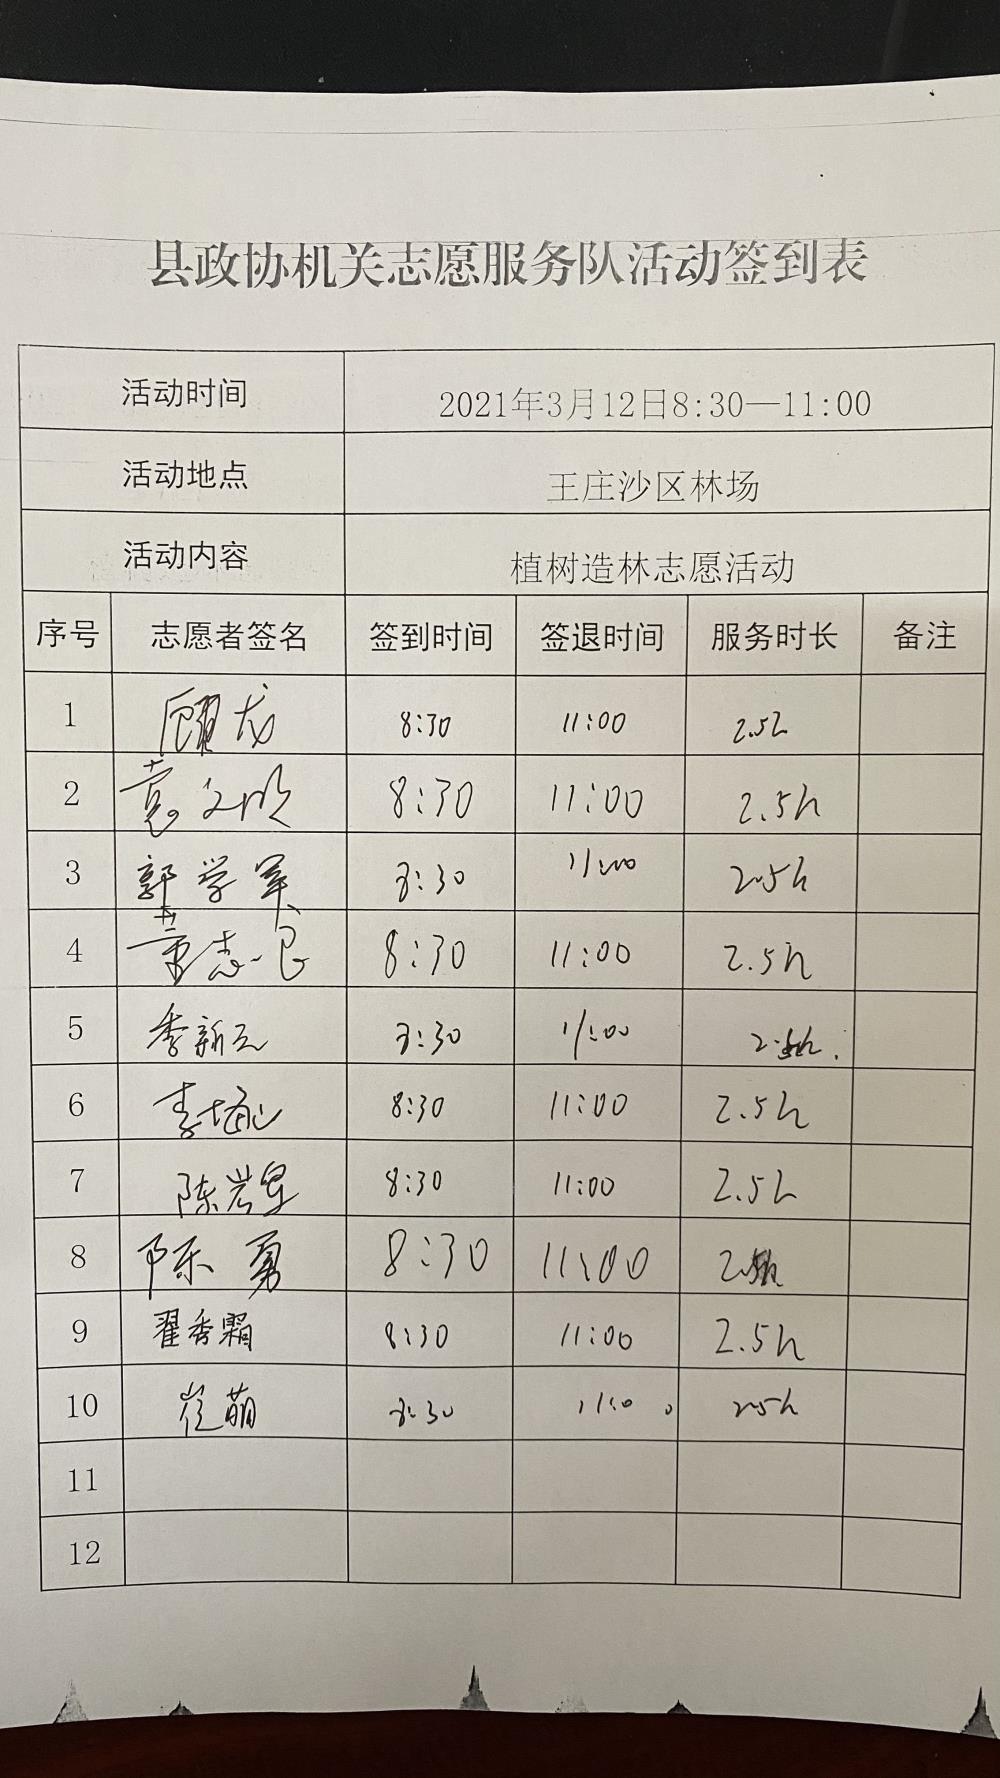 县政协机关志愿服务队活动签到表
活动时间 2021年3月12日8:30—11:00
活动地点 王庄沙区林场
活动内容 植树造林志愿活动
序号 志愿者签名 签到时间 签退时间 服务时长 备注
1 顾龙 8:30 11:00 2.5h
2 袁文明 8:30 11:00 2.5h
3 郭学军 8:30 11:00 2.5h
4 董志良 8:30 11:00 2.5h
5 季新元 8:30 11:00 2.5h
6 李 8:30 11:00 2.5h
7 陈岩 8:30 11:00 2.5h
8 陈勇 8:30 11:00 2.5h
9 翟秀霜 8:30 11:00 2.5h
10 崔萌 8:30 11:00 2.5h
11
12